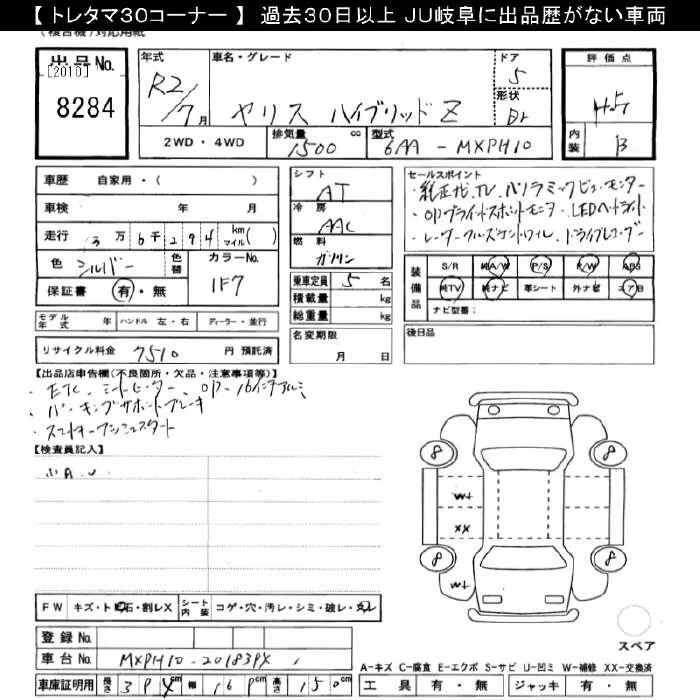 【 トレタマ30コーナー 】 過去30日以上 JU岐阜に出品歴がない車両
出品No. 【2010】 8284
年式 R2/7月
車名・グレード ヤリス ハイブリッド Z
ドア 5
形状
評価点
2WD・4WD
排気量 1500 cc
型式 6AA-MXPH10
内装 B
車歴 自家用・( )
車検 年 月
走行 3万6千294 km マイル( )
色 シルバー 色替 カラーNo. 1F7
保証書 有・無
モデル年式 年 ハンドル 左・右 ディーラー・並行
リサイクル料金 7510 円 預託済
シフト AT
冷房 AAC
燃料 ガソリン
乗車定員 5 名
積載量 kg
総重量 kg
名変期限 月 日
セールスポイント
・純正ナビ、TV、パノラミックビューモニター
・OPブラインドスポットモニタ、LEDヘッドライト
・レーダークルーズコントロール、ドライブレコーダー
装備品 S/R 純A/W P/S P/W ABS
純TV 純ナビ 革シート 外ナビ エアB
ナビ型番:
後日品
【出品店申告欄(不良箇所・欠品・注意事項等)】
・ETC、シートヒーター、OP-16インチアルミ
・パーキングサポートブレーキ
・スマートキープッシュスタート
【検査員記入】
小A.U
8 8
W+
XX
8 8
W+
FW キズ・ト 石・割レX シート内装 コゲ・穴・汚レ・シミ・破レ・
スペア
登録No.
車台No. MXPH10-
A-キズ C-腐食 E-エクボ S-サビ U-凹ミ W-補修 XX-交換済
車庫証明用 長さ cm 幅 cm 高さ 150cm
工具 有・無 ジャッキ 有・無